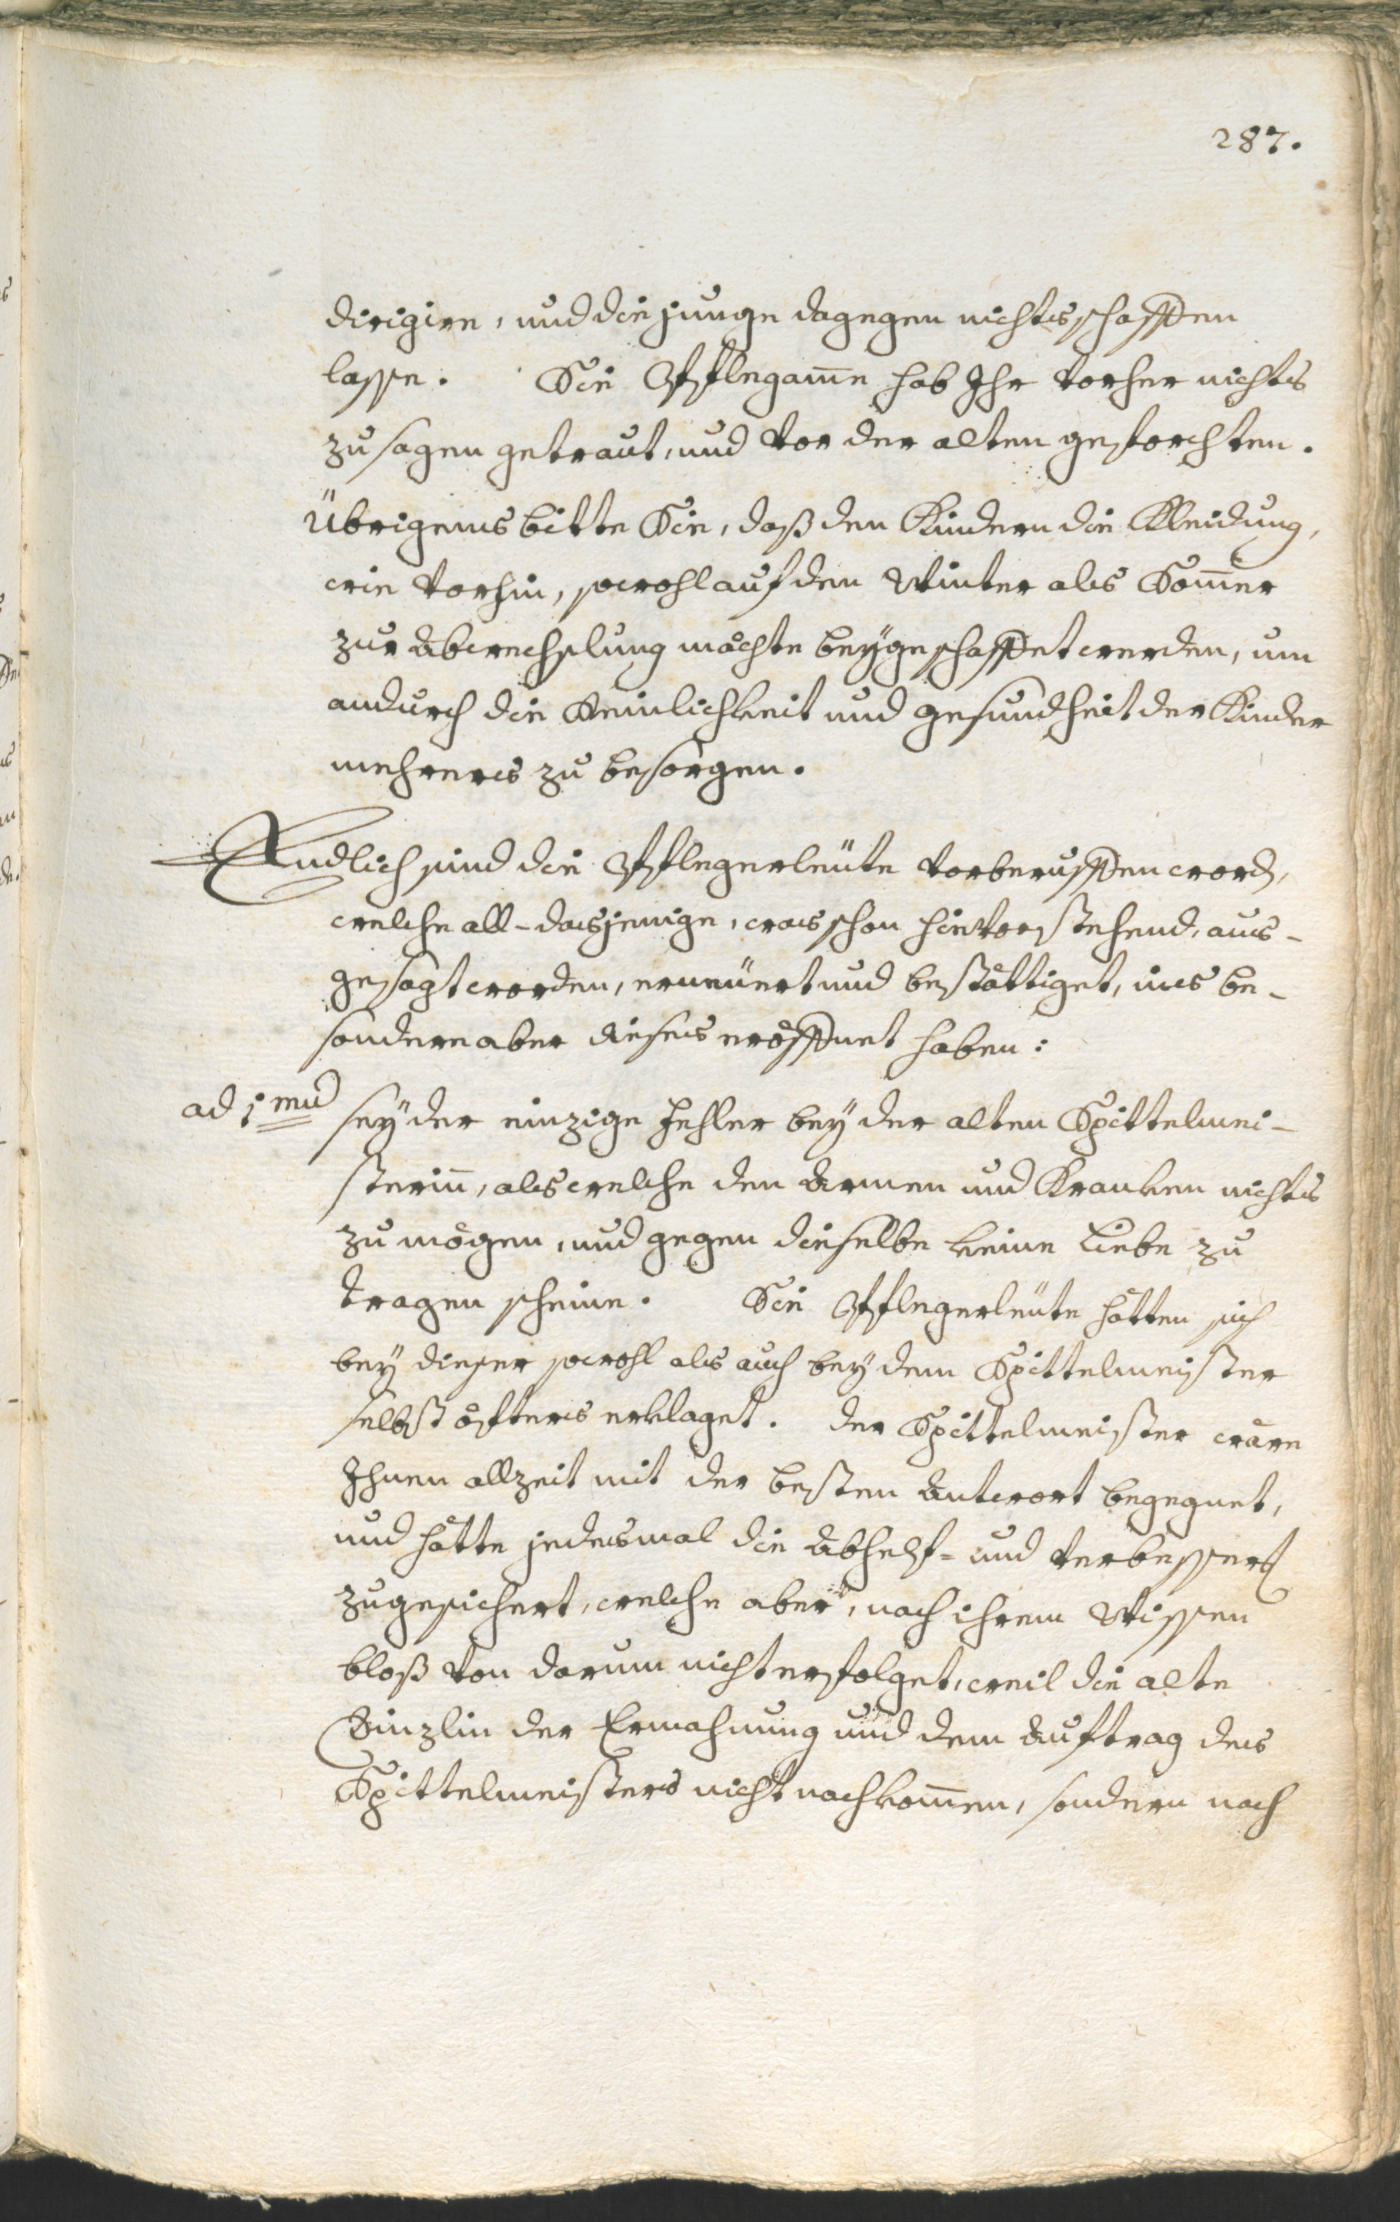 287.
dirigire, und die junge dagegen nichts schaffen
lasse. Die Pflegam̃e hab Ihr vorher nichts
zu sagen getraut, und vor der alten geforchten.
Übrigens bitte Sie, daß den Kindern die Kleidung,
wie vorhin, sowohl auf den Winter als Som̃er
zur Abwechslung möchte beygeschaffet werden, um
andurch die Reinlichkeit und Gesundheit der Kinder
mehrers zu besorgen.
Endlich sind die Pflegerleüte vorberuffen word,
welche all-dasjenige, was schon hievorstehend, aus-
gesagt worden, erneüert und bestättiget, ins be-
sondere aber dieses eröffnet haben:
ad 1mũ sey der einzige Fehler bey der alten Spittelmei-
sterin̄, als welche den Armen und Kranken nichts
zu mögen, und gegen dieselbe keine Liebe zu
tragen scheine. Die Pflegerleüte hätten sich
bey dieser sowohl als auch bey dem Spittelmeister
selbst öfters erklaget. Der Spittelmeister wäre
Ihnen allzeit mit der besten Antwort begegnet,
und hätte jedesmal die Abhelf- und Verbesserg
zugesichert, welche aber, nach ihrem Wissen
bloß von darum nicht erfolget, weil die alte
Sinzlin der Ermahnung und dem Auftrag des
Spittelmeisters nicht nachkom̃en, sondern nach